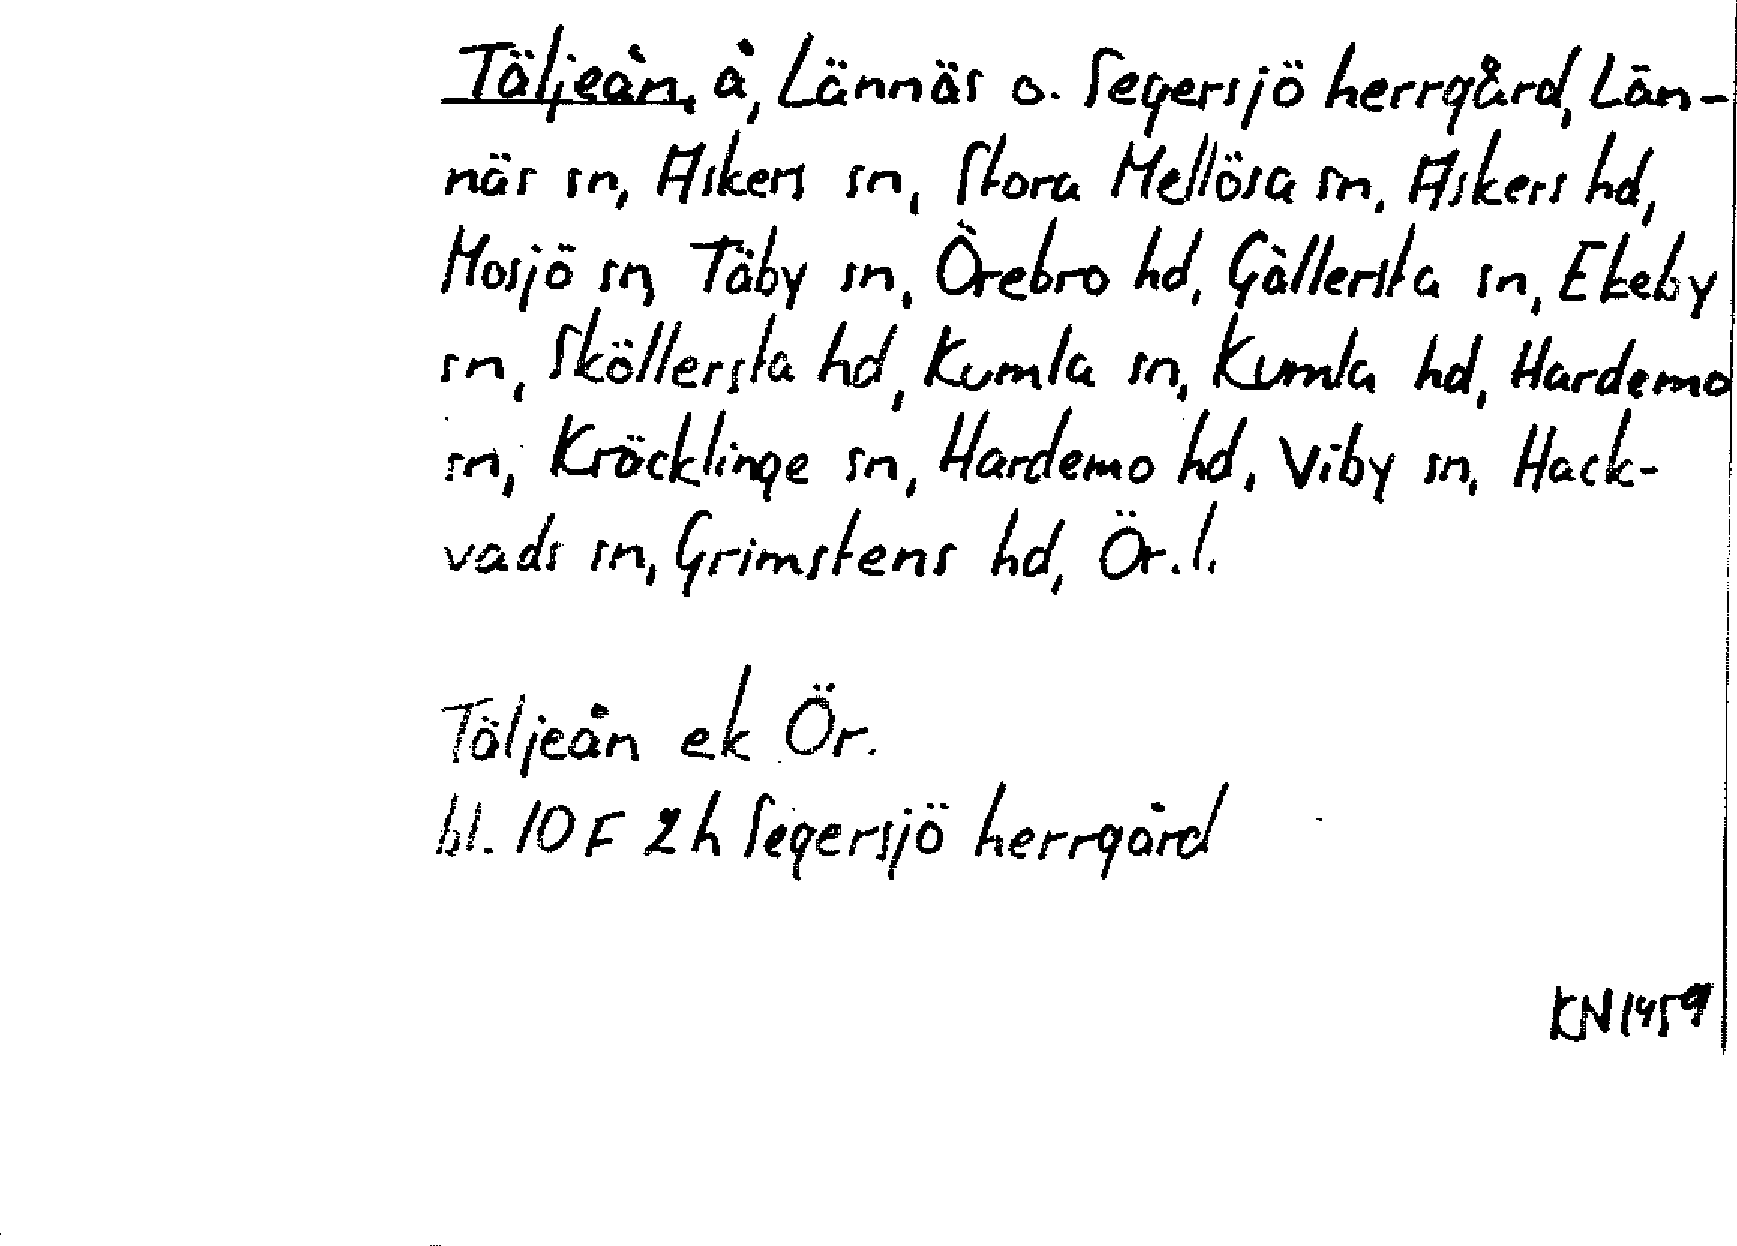 Täljeån, å, Lännäs o. Segersjö herrgård, Län-
näs sn, Askers sn, Stora Mellösa sn, Askers hd,
Mosjö sn, Täby sn, Örebro hd, Gällersta sn, Ekeby
sn, Sköllersta hd, Kumla sn, Kumla hd, Hardemo
sn, Kräcklinge sn, Hardemo hd, Viby sn, Hack-
vads sn, Grimstens hd, Ör. l.
Täljeån ek Ör.
bl. 10 F 2 h Segersjö herrgård
KN 1459